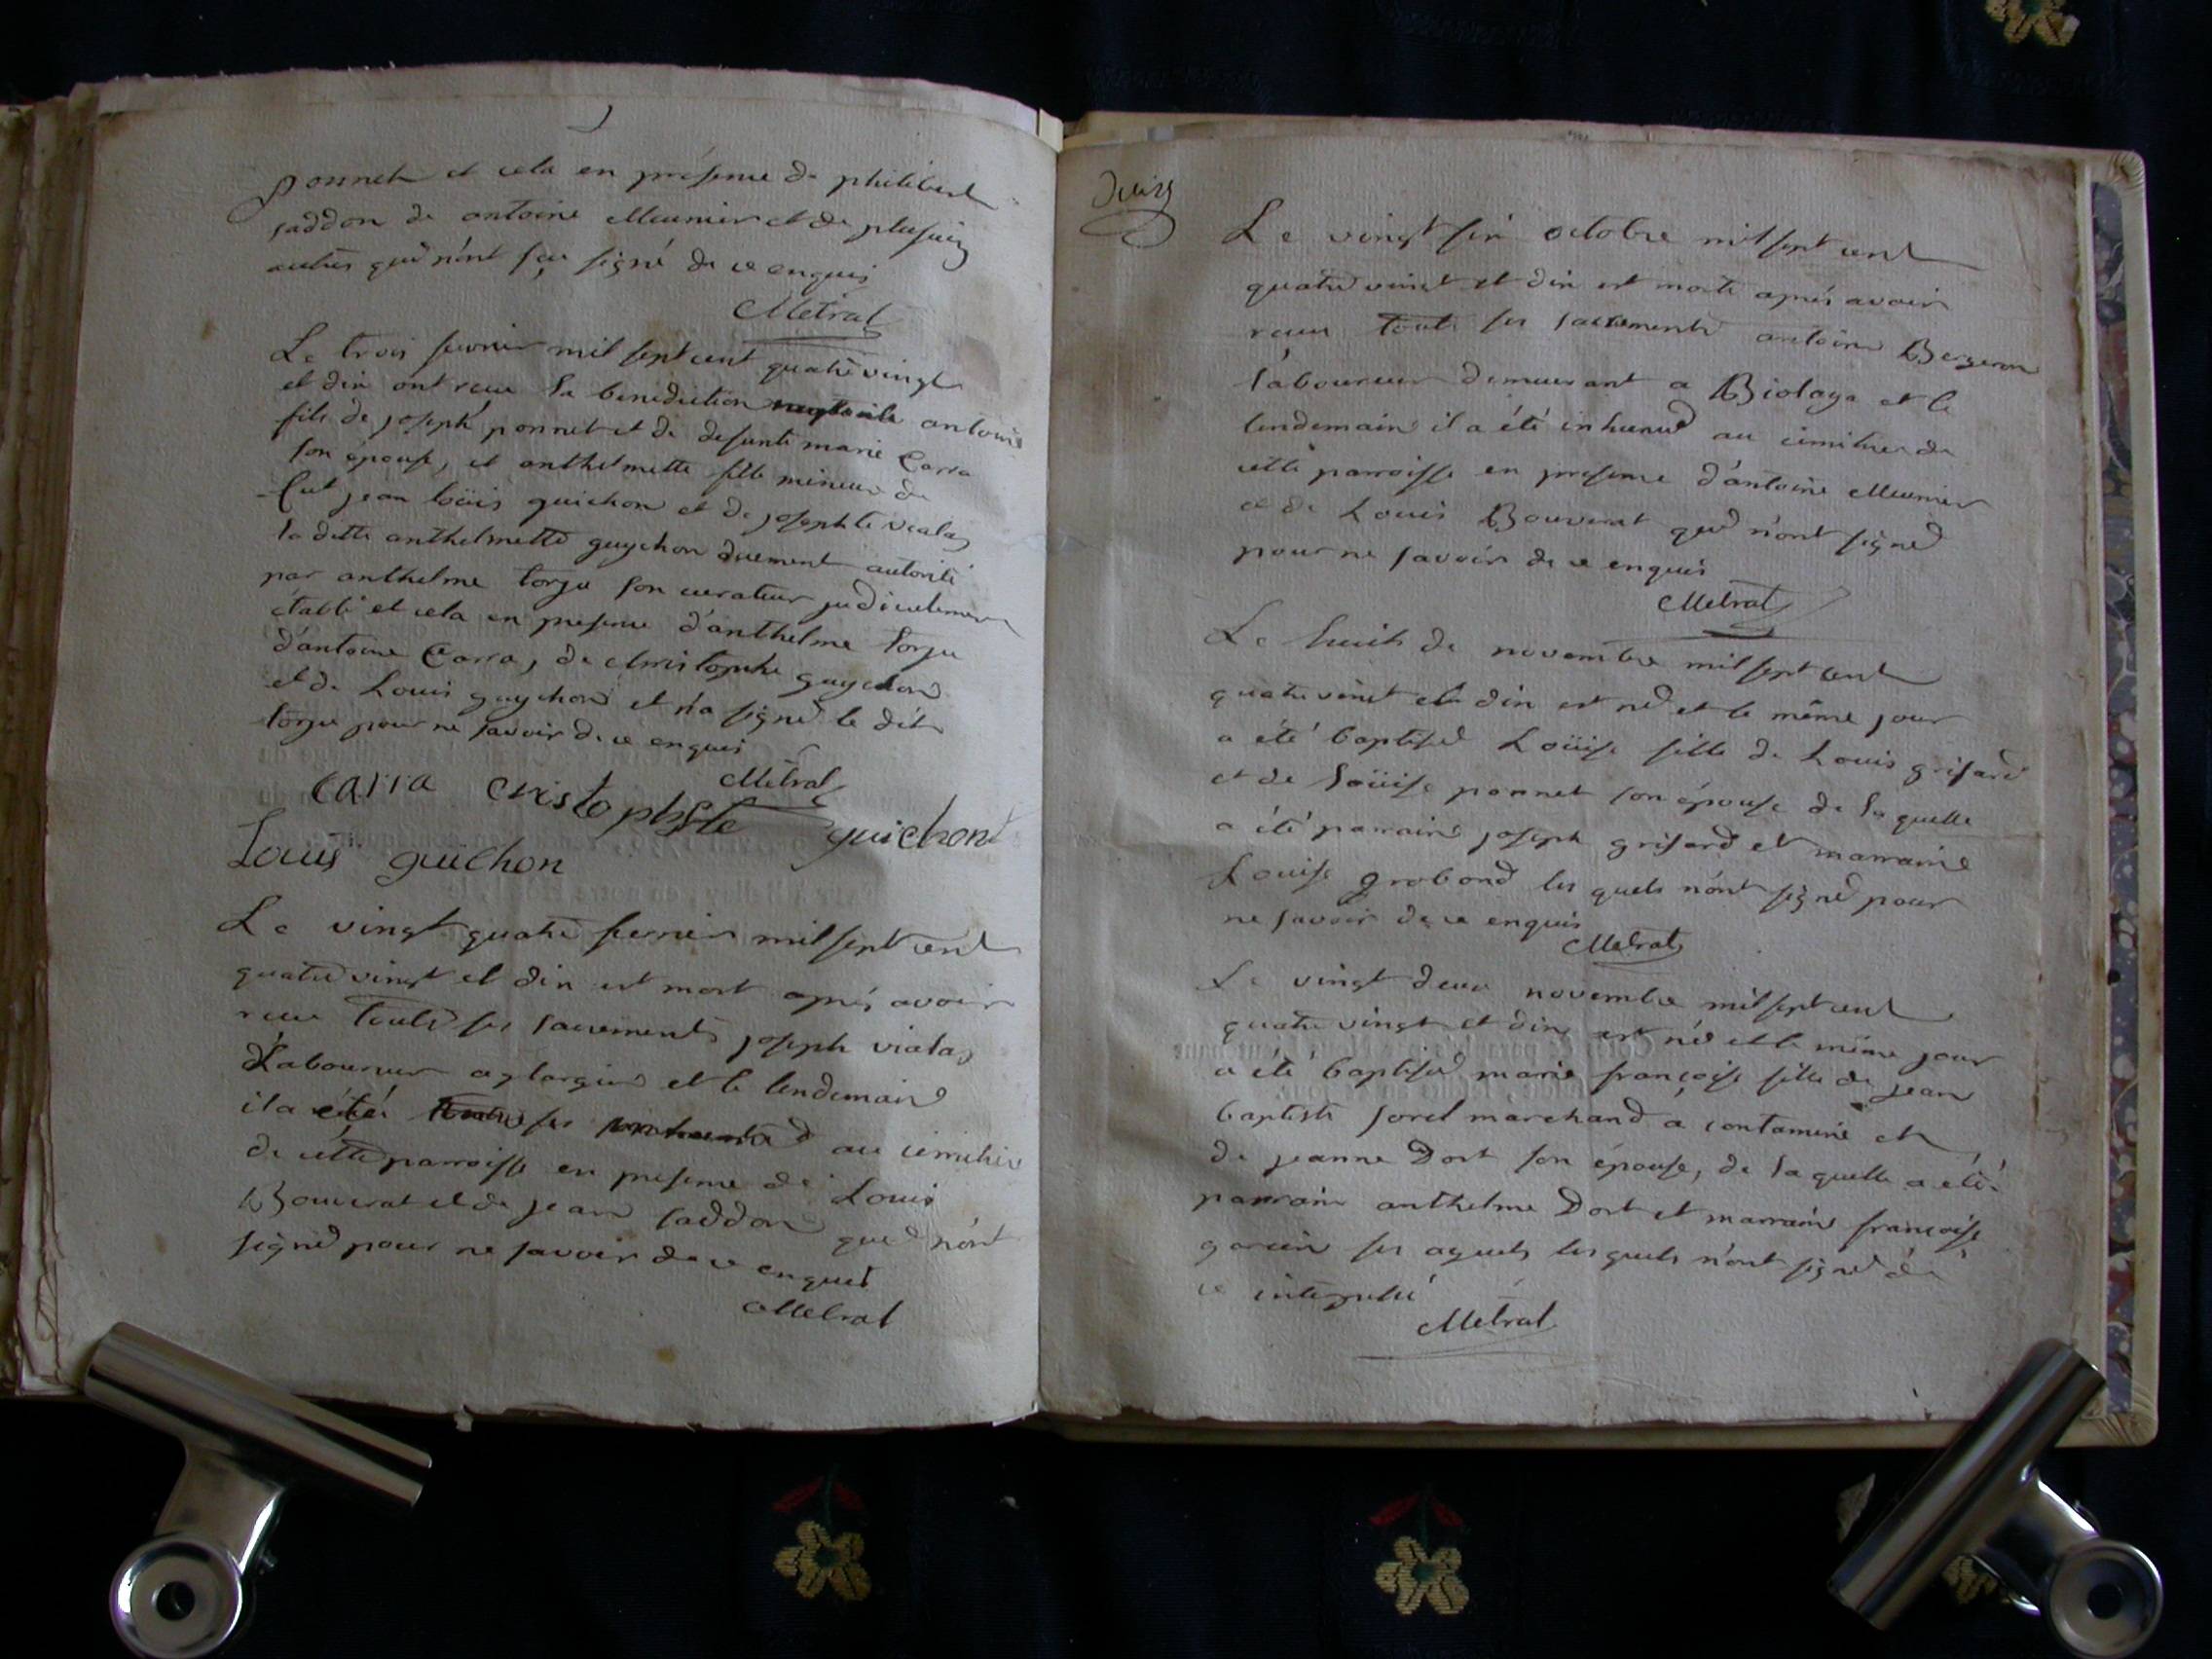 ponnet et cela en présence de philibert
saddon de antoine Meunier et de plusieurs
autres qui n'ont sçu signé de ce enquis
Métral
Le trois fevrier mil sept cent quatre vingt
et dix ont recu la benediction nuptiale antoine
fils de joseph ponnet et de defunte marie Carra
son épouse, et anthelmette fille mineure de
fut jean loüis guichon et de josephte vialaz
la ditte anthelmette guychon duement autorité
par anthelme torju son curateur judiciulement
établi et cela en presence d'anthelme torju
d'antoine Carra, de christophe guychon
et de Louis guychon et n'a signé le dit
torju pour ne savoir de ce enquis
Métral
carra cristophle guichont
Louis guichon
Le vingt quatre fevrier mil sept cent
quatre vingt et dix est mort aprés avoir
recu touts ses sacrements joseph vialaz
laboureur et le lendemain
il a été au cimitiere
de cette parroisse en presence de Louis
Bouvrat et de jean saddon qui n'ont
signé pour ne savoir de ce enquis
Métral
Le vingt six octobre mil sept cent
quatre vinct et dix est mort aprés avoir
recu touts ses sacrements antoine Bergeron
laboureur demeurant a Biolaya et le
lendemain il a été inhumé au cimitiere de
cette parroisse en presence d'antoine Meunier
et de Louis Bouvrat qui n'ont signé
pour ne savoir de ce enquis
Métral
Le huit de novembre mil sept cent
quatre vinct et dix est né et le même jour
a été baptisé Loüise fille de Louis grisard
et de loüise ponnet son épouse de laquelle
a été parrain joseph grisard et marraine
Louise grobond les quels n'ont signé pour
ne savoir de ce enquis
Métral
Le vingt deux novembre mil sept cent
quatre vingt et dix est né et le même jour
a été baptisé marie françoise fille de jean
baptiste sorel marchand a contamine et
de jeanne Dort son épouse, de laquelle a été
parrain anthelme Dort et marraine françoise
garcin les quels n'ont signé de
ce
Métral